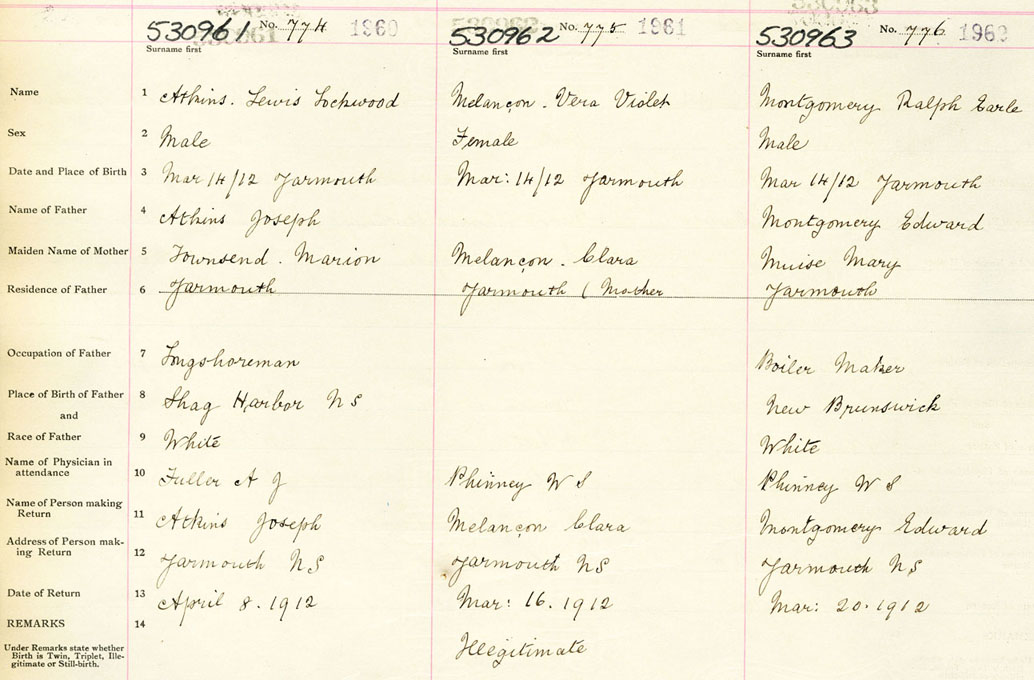 530961 No. 774 1960 530962 No. 775 1961 530963 No. 776 1962
Surname first Surname first Surname first
Name 1 Atkins. Lewis Lockwood Melançon. Vera Violet Montgomery Ralph Earle
Sex 2 Male Female Male
Date and Place of Birth 3 Mar 14/12 Yarmouth Mar: 14/12 Yarmouth Mar 14/12 Yarmouth
Name of Father 4 Atkins Joseph Montgomery Edward
Maiden Name of Mother 5 Townsend. Marion Melançon. Clara Muise Mary
Residence of Father 6 Yarmouth Yarmouth ( Mother Yarmouth
Occupation of Father 7 Longshoreman Boiler Maker
Place of Birth of Father 8 Shag Harbor N S New Brunswick
and
Race of Father 9 White White
Name of Physician in
attendance 10 Fuller A J Phinney W S Phinney W S
Name of Person making
Return 11 Atkins Joseph Melançon Clara Montgomery Edward
Address of Person mak-
ing Return 12 Yarmouth N S Yarmouth N S Yarmouth N S
Date of Return 13 April 8. 1912 Mar: 16. 1912 Mar: 20. 1912
REMARKS 14
Under Remarks state whether
Birth is Twin, Triplet, Ille-
gitimate or Still-birth. Illegitimate